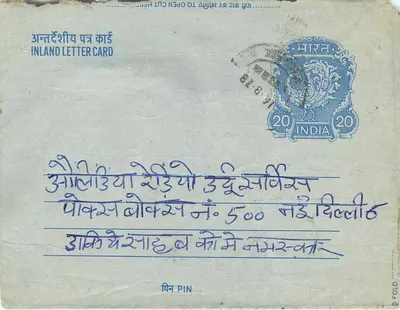 यहां काट कर खोलिए TO OPEN CUT HERE
अन्तर्देशीय पत्र कार्ड
INLAND LETTER CARD
भारत
20 20
INDIA
16.8.78
औलिडिया रेडियो उर्दू सर्विस
पोक्स बोक्स नं. 500 नई दिल्ली
डाकिये साहब को मे नमस्कार
पिन PIN
FOLD